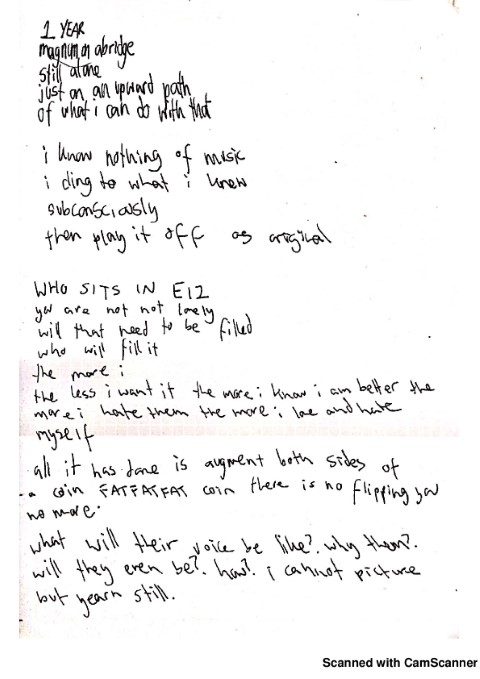 1 YEAR
magnum on a bridge
still alone
just on an upward path
of what i can do with that
i know nothing of music
i cling to what i knew
subconsciously
then play it off as original
WHO SITS IN E12
you are not not lonely
will that need to be filled
who will fill it
the more i
the less i want it the more i know i am better the
more i hate them the more i love and hate
myself
all it has done is augment both sides of
a coin FATFATFAT coin there is no flipping you
no more.
what will their voice be like?. why them?.
will they even be?. how?. i cannot picture
but yearn still.
Scanned with CamScanner